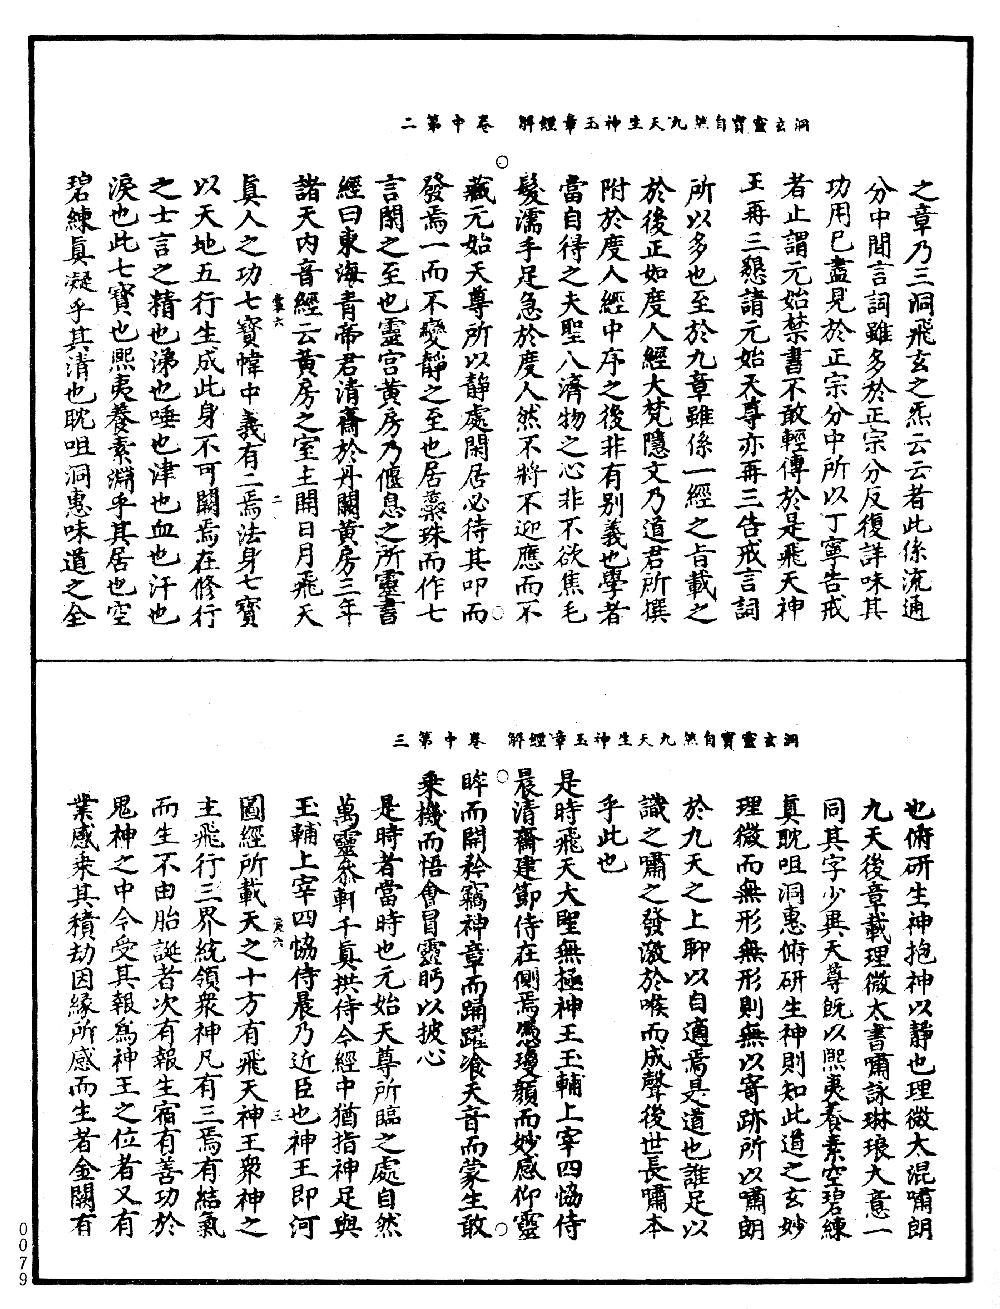 洞玄靈寶自然九天生神玉章經解　卷中第二
之章乃三洞飛玄之炁云云者此係流通
分中間言詞雖多於正宗分反復詳味其
功用已盡見於正宗分中所以丁寧告戒
者止謂元始禁書不敢輕傳於是飛天神
王再三懇請元始天尊亦再三告戒言詞
所以多也至於九章雖係一經之旨載之
於後正如度人經大梵隱文乃道君所撰
附於度人經中序之後非有别義也學者
當自待之夫聖人濟物之心非不欲焦毛
髮濡手足急於度人然不將不迎應而不
藏元始天尊所以静處閑居必待其叩而
發焉一而不變静之至也居蘂珠而作七
言閑之至也靈宫黄房乃偃息之所靈書
經曰東海青帝君清齋於丹闕黄房三年
諸天内音經云黄房之室主開日月飛天
真人之功七寶幃中義有二焉法身七寶
以天地五行生成此身不可闕焉在修行
之士言之精也涕也唾也津也血也汗也
淚也此七寶也熙夷養素淵乎其居也空
碧練真凝乎其清也耽咀洞惠味道之全
二
洞玄靈寶自然九天生神玉章經解　卷中第三
也俯研生神抱神以静也理微太混嘯朗
九天後章載理微太書嘯詠琳琅大意一
同其字少異天尊既以熙夷養素空碧練
真耽咀洞惠俯研生神則知此道之玄妙
理微而無形無形則無以寄跡所以嘯朗
於九天之上聊以自適焉是道也誰足以
識之嘯之發激於喉而成聲後世長嘯本
乎此也
是時飛天大聖無極神王玉輔上宰四恊侍
晨清齋建節侍在側焉慿瓊顔而妙感仰靈
眸而開矜竊神章而踊躍飡天音而蒙生敢
乗機而悟會冒靈眄以披心
是時者當時也元始天尊所臨之處自然
萬靈叅軒千真拱侍今經中猶指神足與
玉輔上宰四恊侍晨乃近臣也神王即河
圖經所載天之十方有飛天神王衆神之
主飛行三界統領衆神凡有三焉有結氣
而生不由胎誕者次有報生宿有善功於
鬼神之中今受其報爲神王之位者又有
業感乗其積劫因緣所感而生者金闕有
三
0079